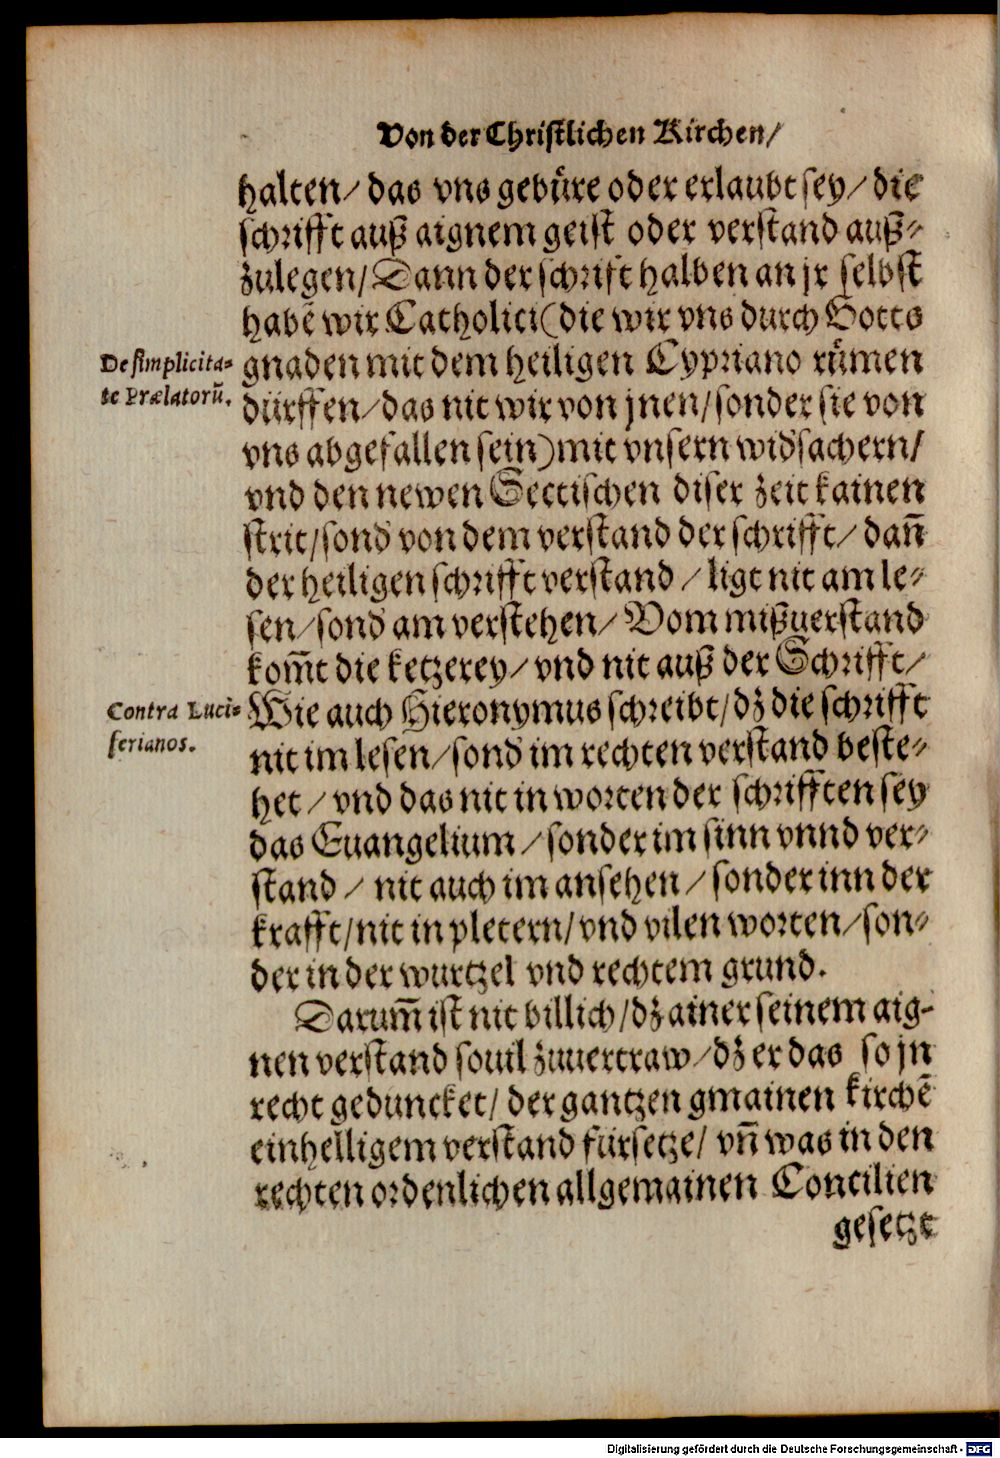 Von der Christlichen Kirchen/
halten/ das vns gebüre oder erlaubt sey/ die
schrifft auß aignem geist oder verstand auß-
zulegen/ Dann der schrift halben an jr selbst
habē wir Catholici (die wir vns durch Gotts
De simplicita-
te Prælatorū.
gnaden mit dem heiligen Cypriano rümen
dürffen/ das nit wir von jnen/ sonder sie von
vns abgefallen sein) mit vnsern widsachern/
vnd den newen Sectischen diser zeit kainen
strit/ sond von dem verstand der schrifft/ dañ
der heiligen schrifft verstand/ ligt nit am le-
sen/ sond am verstehen/ Vom mißuerstand
kom̄t die ketzerey/ vnd nit auß der Schrifft/
Contra Luci-
ferianos.
Wie auch Hieronymus schreibt/ dz die schrifft
nit im lesen/ sond im rechten verstand beste-
het/ vnd das nit in worten der schrifften sey
das Euangelium/ sonder im sinn vnnd ver-
stand/ nit auch im ansehen/ sonder inn der
krafft/ nit in pletern/ vnd vilen worten/ son-
der in der wurtzel vnd rechtem grund.
Darum̄ ist nit billich/ dz ainer seinem aig-
nen verstand souil zuuertraw/ dz er das so jn
recht geduncket/ der gantzen gmainen kirchē
einhelligem verstand fürsetze/ vñ was in den
rechten ordenlichen allgemainen Concilien
gesetzt
Digitalisierung gefördert durch die Deutsche Forschungsgemeinschaft - DFG